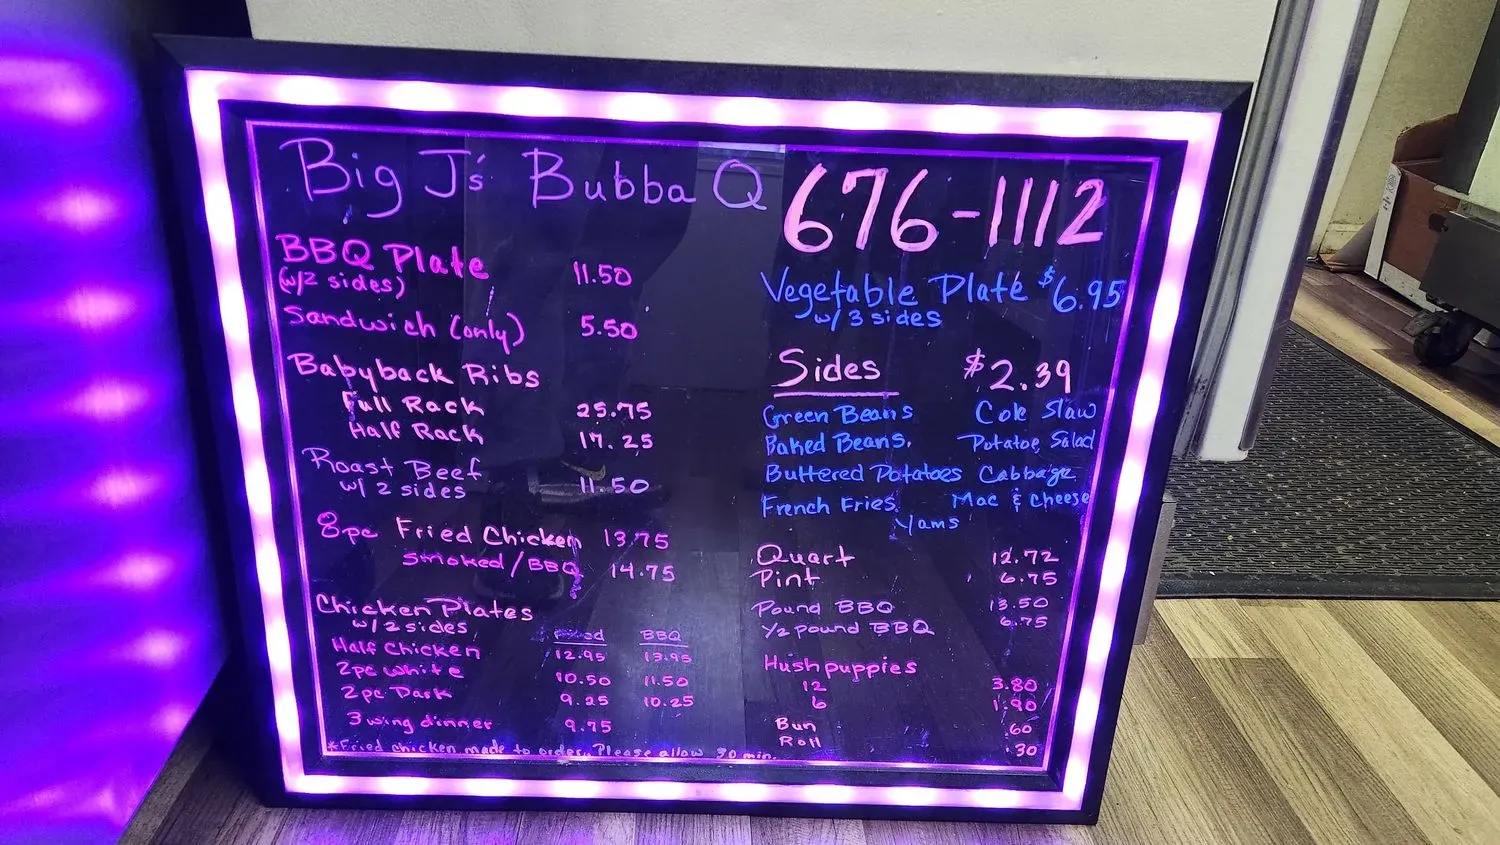 Big J's Bubba Q
676-1112
BBQ Plate 11.50
(w/2 sides)
Sandwich (only) 5.50
Babyback Ribs
Full Rack 25.75
Half Rack 17.25
Roast Beef
w/ 2 sides 11.50
8pc Fried Chicken 13.75
Smoked/BBQ 14.75
Chicken Plates
w/ 2 sides
Fried BBQ
Half Chicken 12.95 13.95
2pc White 10.50 11.50
2pc Dark 9.25 10.25
3 wing dinner 9.75
*Fried chicken made to order. Please allow 30 min.
Vegetable Plate $6.95
w/ 3 sides
Sides $2.39
Green Beans Cole Slaw
Baked Beans. Potatoe Salad
Buttered Potatoes Cabbage
French Fries Mac & Cheese
Yams
Quart 12.72
Pint 6.75
Pound BBQ 13.50
1/2 pound BBQ 6.75
Hushpuppies
12 3.80
6 1.90
Bun .60
Roll .30